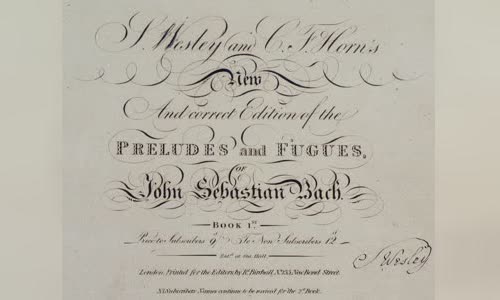 S. Wesley and C. F. Horn's
New
And correct Edition of the
PRELUDES and FUGUES,
OF
John Sebastian Bach.
BOOK 1st
Price to Subscribers 9s To Non Subscribers 12s
Entd at Sta. Hall
S Wesley
London Printed for the Editors by Rt Birchall, No 133, New Bond Street.
NB. Subscribers Names continue to be received for the 2d Book.